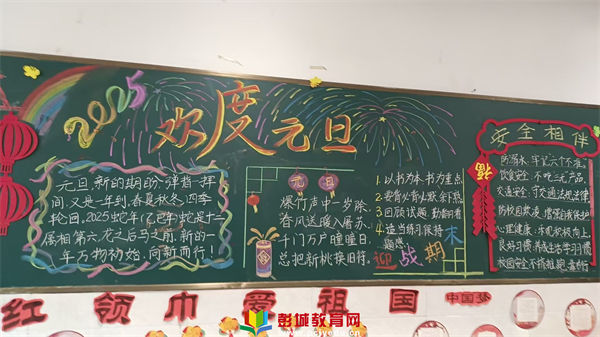 2025
欢度元旦
元旦,新的期盼,弹指一挥
间,又是一年到,春夏秋冬,四季
轮回。2025蛇年(乙巳年)蛇是十二
属相第六,龙之后马之前,新的一
年万物初始,向新而行!
元旦
爆竹声中一岁除
春风送暖入屠苏
千门万户曈曈日
总把新桃换旧符。
1.以书为本,书为重点
2.要背必背,以默
3.回顾试题,勤翻看
4.适当练习保持
题感
迎战期末
安全相伴
福
防溺水,牢记六个不准。
饮食安全,不吃三无产品。
交通安全,守交通法规法律
防校园欺凌,增强自我保护
心理健康,乐观积极向上
良好习惯,养成生活学习习惯
校园安全,不拥挤
红领巾爱祖国
中国梦
彭城教育网